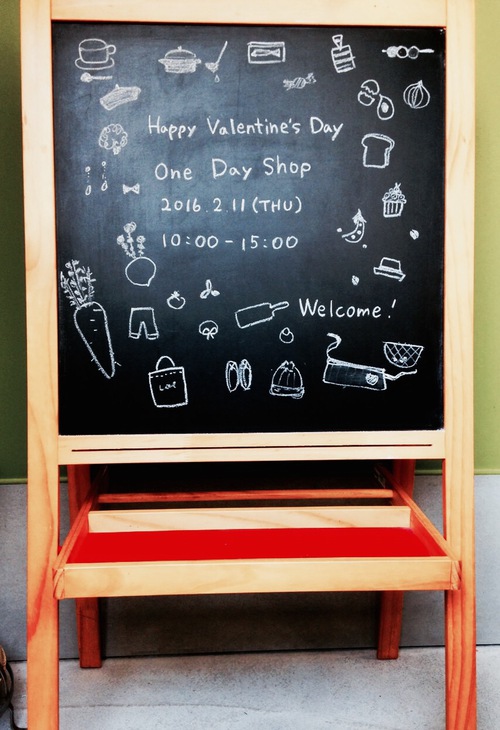 Happy Valentine's Day
One Day Shop
2016.2.11 (THU)
10:00-15:00
Welcome!